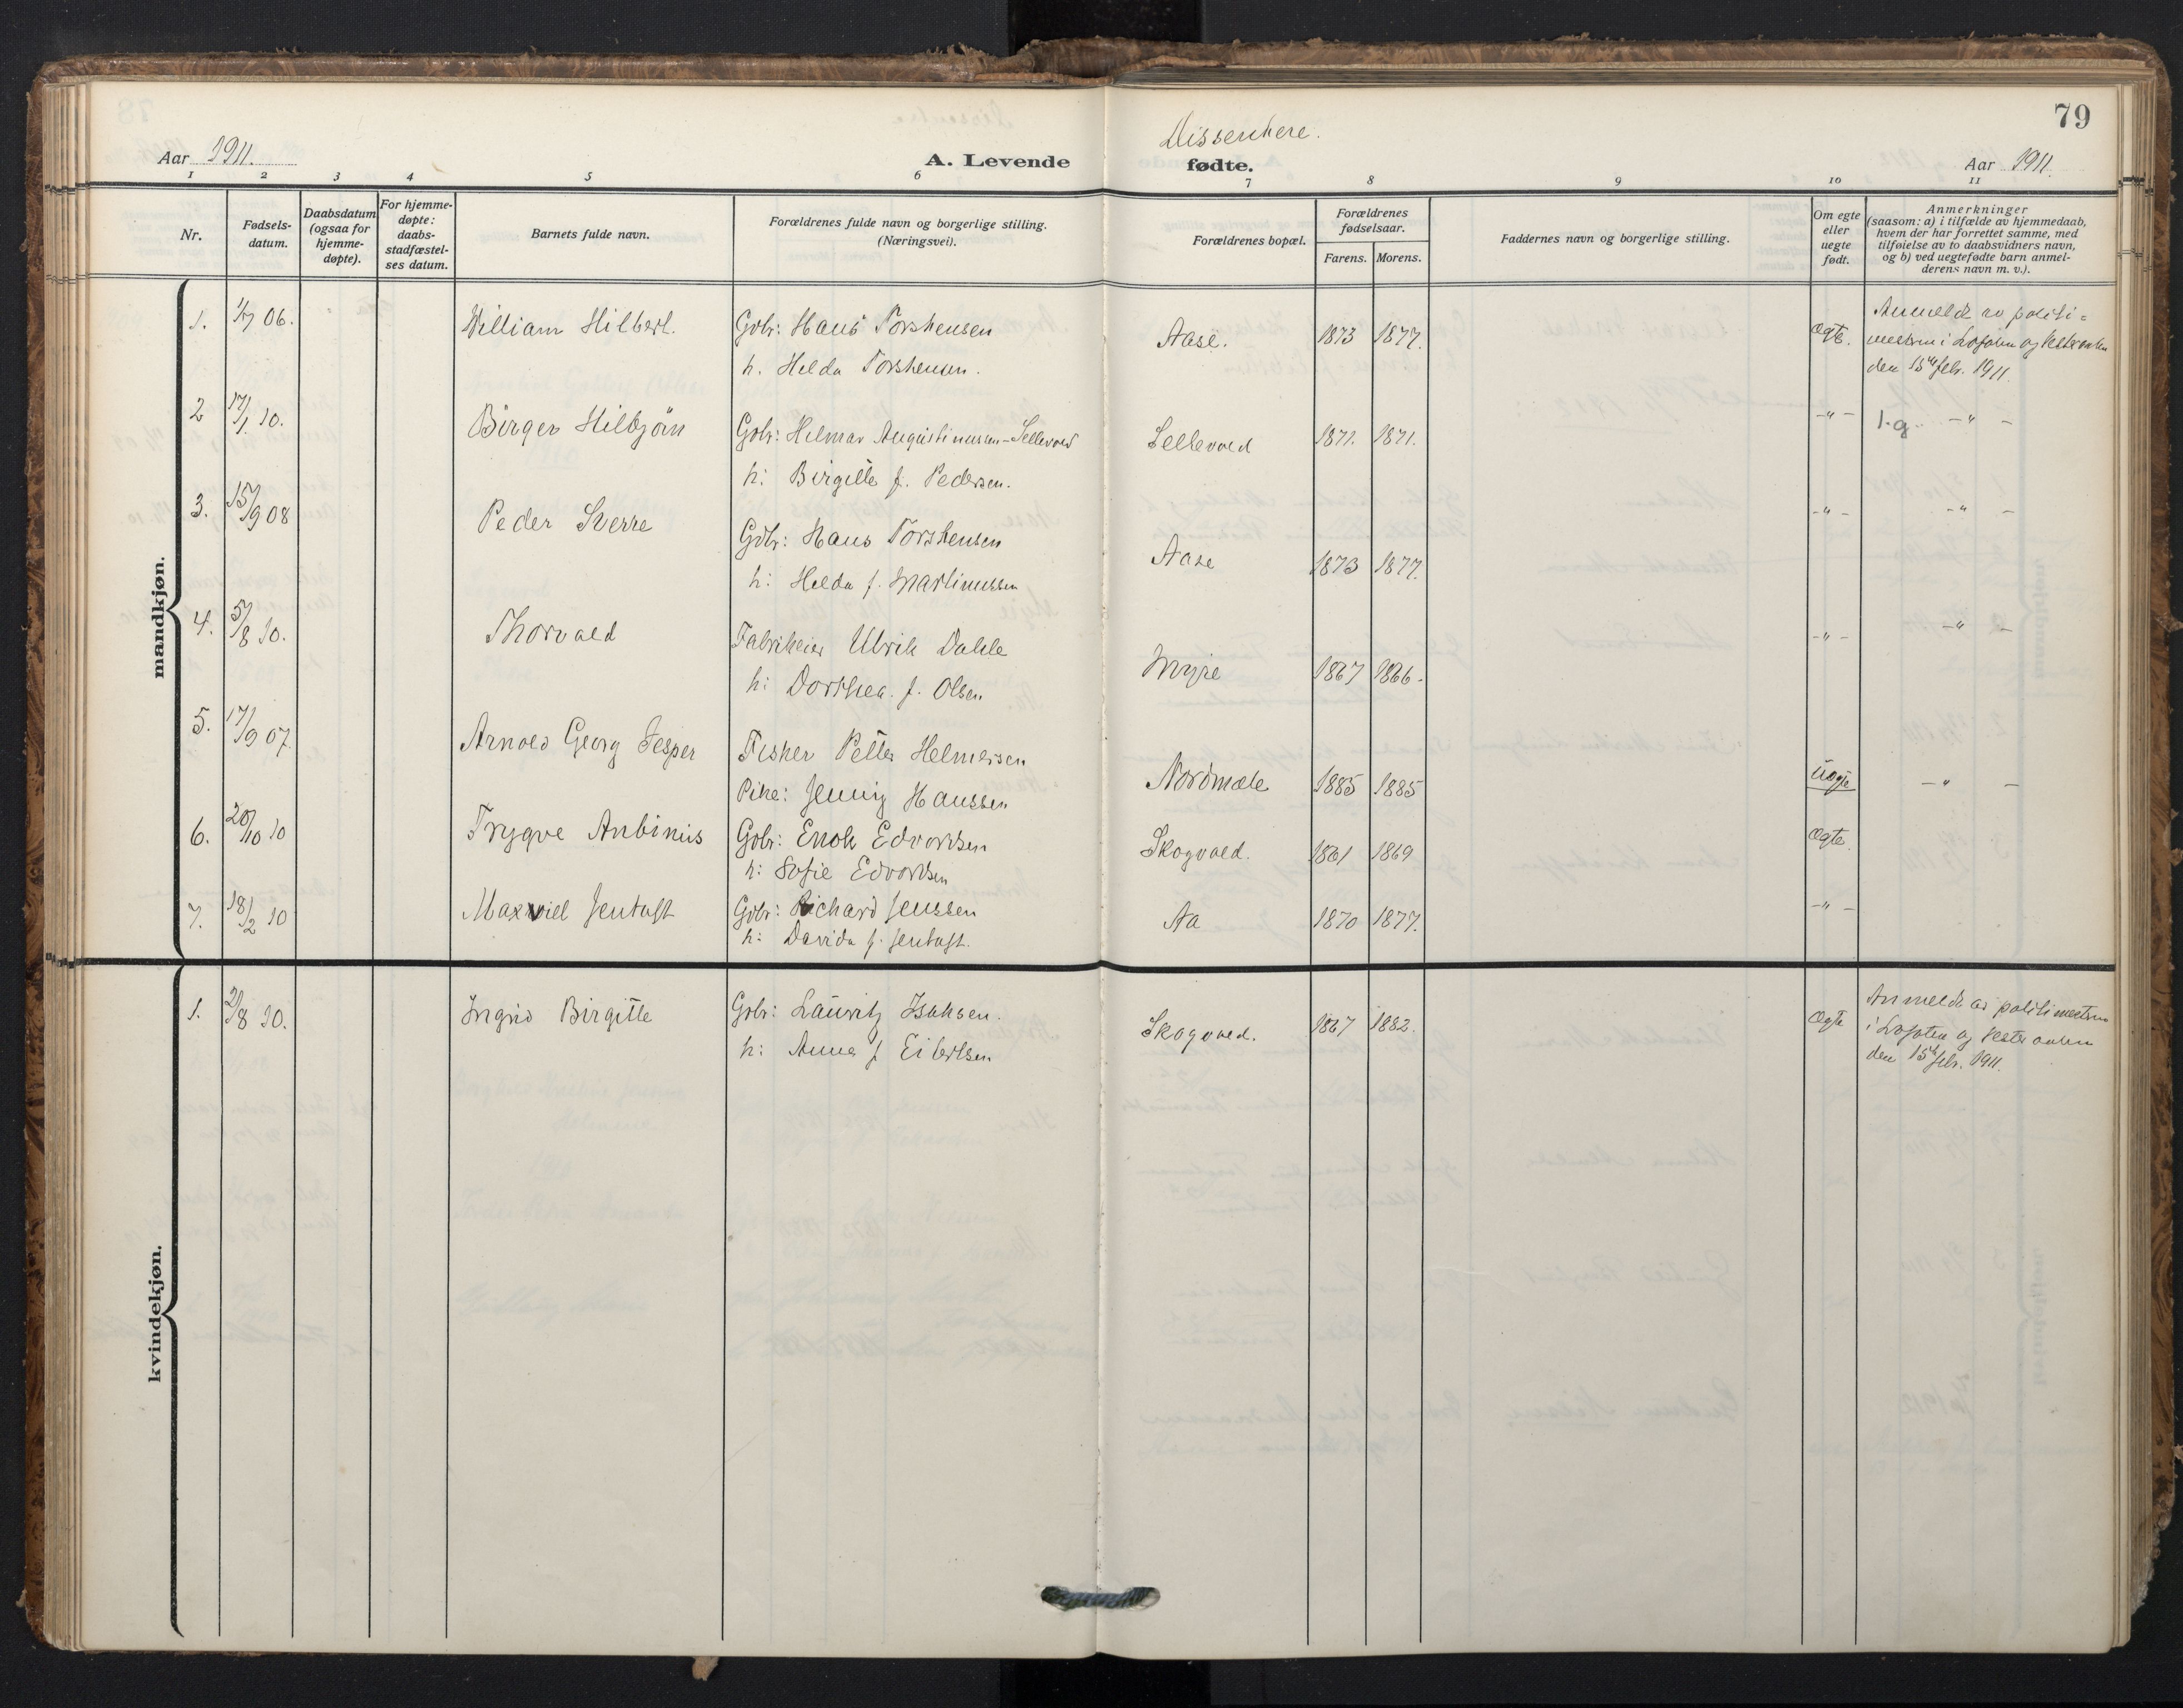 79
Dissentere.
Aar 1911.
A. Levende fødte.
Aar 1911.
1 2 3 4 5 6 7 8 9 10 11
Nr.
Fødsels-
datum.
Daabsdatum
(ogsaa for
hjemme-
døpte).
For hjemme-
døpte:
daabs-
stadfæstel-
ses datum.
Barnets fulde navn.
Forældrenes fulde navn og borgerlige stilling.
(Næringsvei).
Forældrenes bopæl.
Forældrenes
fødselsaar.
Farens. Morens.
Faddernes navn og borgerlige stilling.
Om egte
eller
uegte
født.
Anmerkninger
(saasom: a) i tilfælde av hjemmedaab,
hvem der har forrettet samme, med
tilføielse av to daabsvidners navn,
og b) ved uegtefødte barn anmel-
derens navn m. v.).
mandkjøn.
1. 1/7 06. William Hilbert. Gbr: Hans Torstensen Aase. 1873 1877. Ægte. Anmeldt av politi=
h. Helda Torstensen. mestren i Lofoten og Vesteraalen
den 15de febr. 1911.
2 17/1 10. Birger Hilbjørn Gbr: Hilmar Augustinussen-Sellevold Sellevold 1871. 1871. -"- 1.g. -"-
h: Birgitte f. Pedersen.
3. 15/9 08 Peder Sverre Gbr: Hans Torstensen Aase 1873 1877. -"- -"-
h: Helda f. Martinussen
4. 5/8 10. Thorvald Fabrikeier Ulrik Dahle Myre 1867 1866. -"- -"-
h: Dorthea f. Olsen
5. 17/9 07. Arnold Georg Jesper Fisker Petter Helmersen Nordmæle 1885 1885 Uægte -"-
Pike: Jenny Hanssen
6. 20/10 10 Trygve Anbinius Gbr: Enok Edvardsen Skogvold. 1861 1869 Ægte.
h: Sofie Edvardsen
7. 18/2 10 Maxwiel Jentoft Gbr: Richard Jenssen Aa 1870 1877. -"-
h: Davida f. Jentoft.
kvindekjøn.
1. 2/8 10. Ingrid Birgitte Gbr: Lauritz Isaksen. Skogvold. 1867 1882. Ægte Anmeldt av politimestren
h: Anna f Eilertsen i Lofoten og Vesteraalen
den 15de febr. 1911.